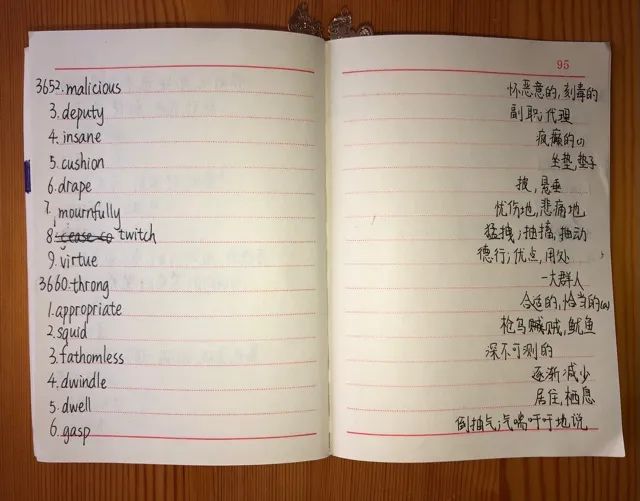 3652.malicious
3.deputy
4.insane
5.cushion
6.drape
7.mournfully
8.cease to twitch
9.virtue
3660.throng
1.appropriate
2.squid
3.fathomless
4.dwindle
5.dwell
6.gasp
95
怀恶意的,刻毒的
副职,代理
疯癫的
坐垫,垫子
披,悬垂
忧伤地,悲痛地
猛拽;抽搐,抽动
德行;优点,用处
一大群人
合适的,恰当的(a)
枪乌贼,鱿鱼
深不可测的
逐渐减少
居住,栖息
倒抽气;气喘吁吁地说